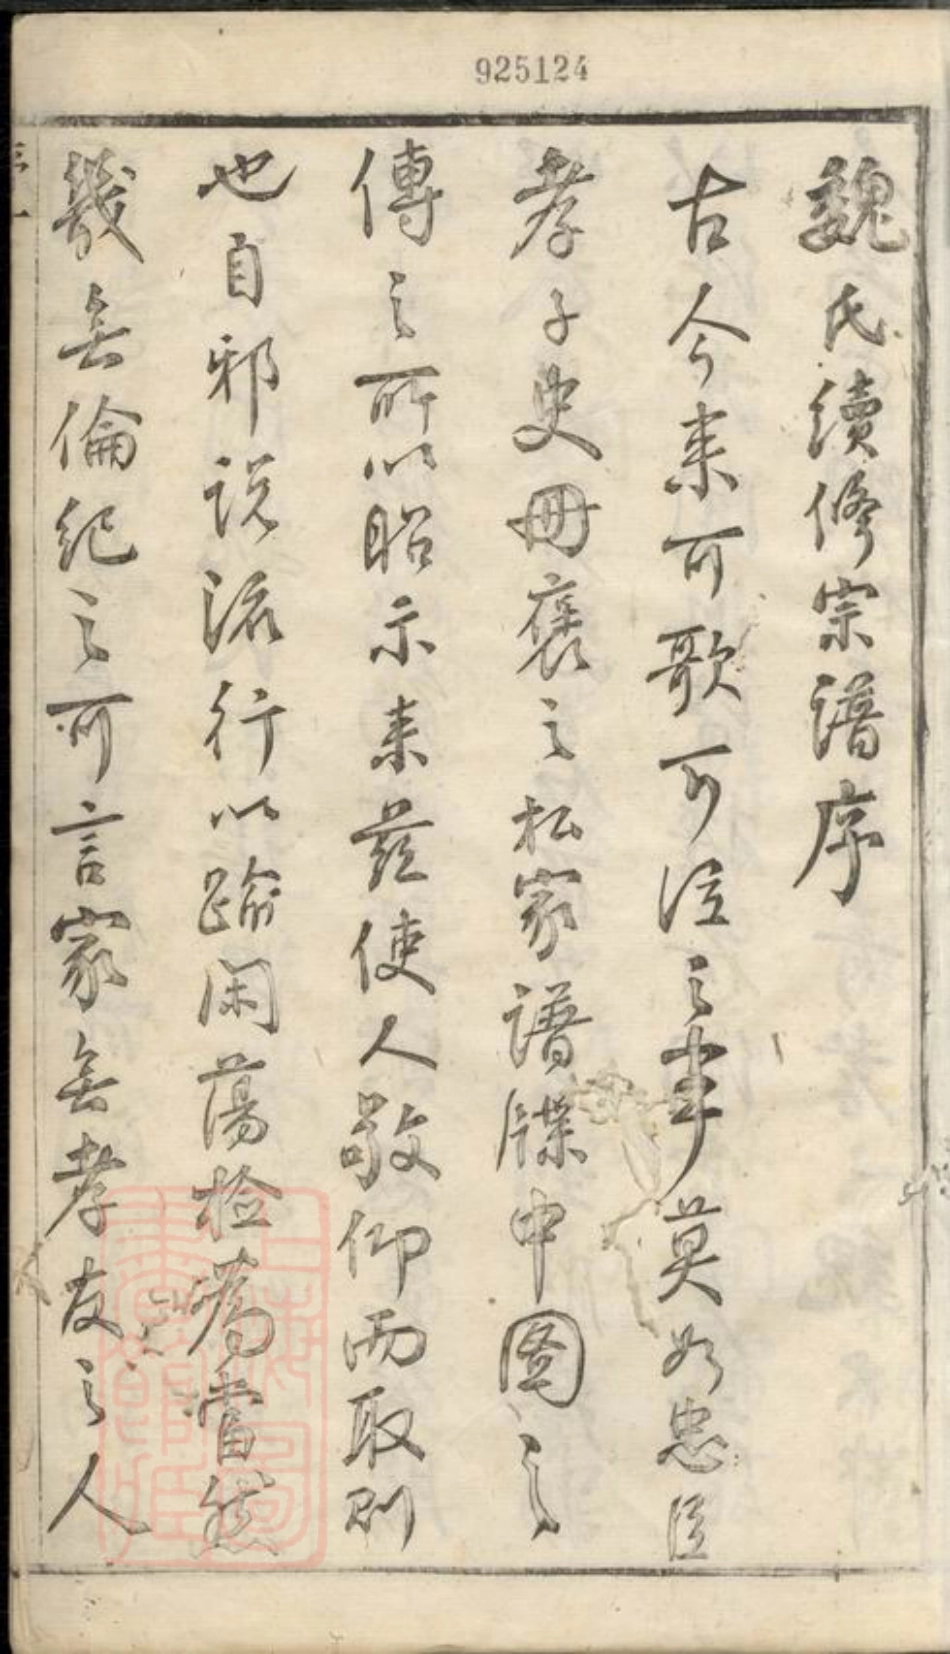 925124
魏氏續修宗譜序
古今來可歌可泣之事莫如忠臣
孝子史冊褒之私家譜牒中圖之
傳之所以昭示來茲使人敬仰而取則
也自邪說流行以踰閑蕩檢爲當然
幾無倫紀之可言家無孝友之人